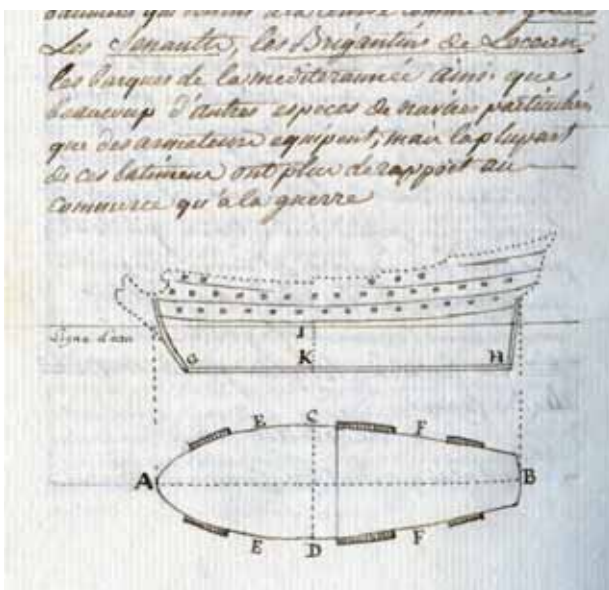 batimens qui
Les Senaults, les Brigantins de Locean,
les barques de la mediterannée ainsi que
beaucoup d'autres especes de navires particuliers
que des armateurs equipent, mais la plupart
de ces batimens ont plus de rapport au
commerce qu'a la guerre
Ligne d'eau
I
G K H
E C F
A B
E D F